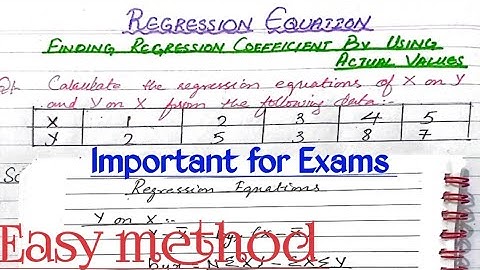 REGRESSION EQUATION
FINDING REGRESSION COEFFICIENT BY USING
ACTUAL VALUES
Calculate the regression equations of X on Y
and Y on X from the following data:-
X 1 2 3 4 5
Y 2 5 3 8 7
Important for Exams
Regression Equations
Y on X :-
Easy method